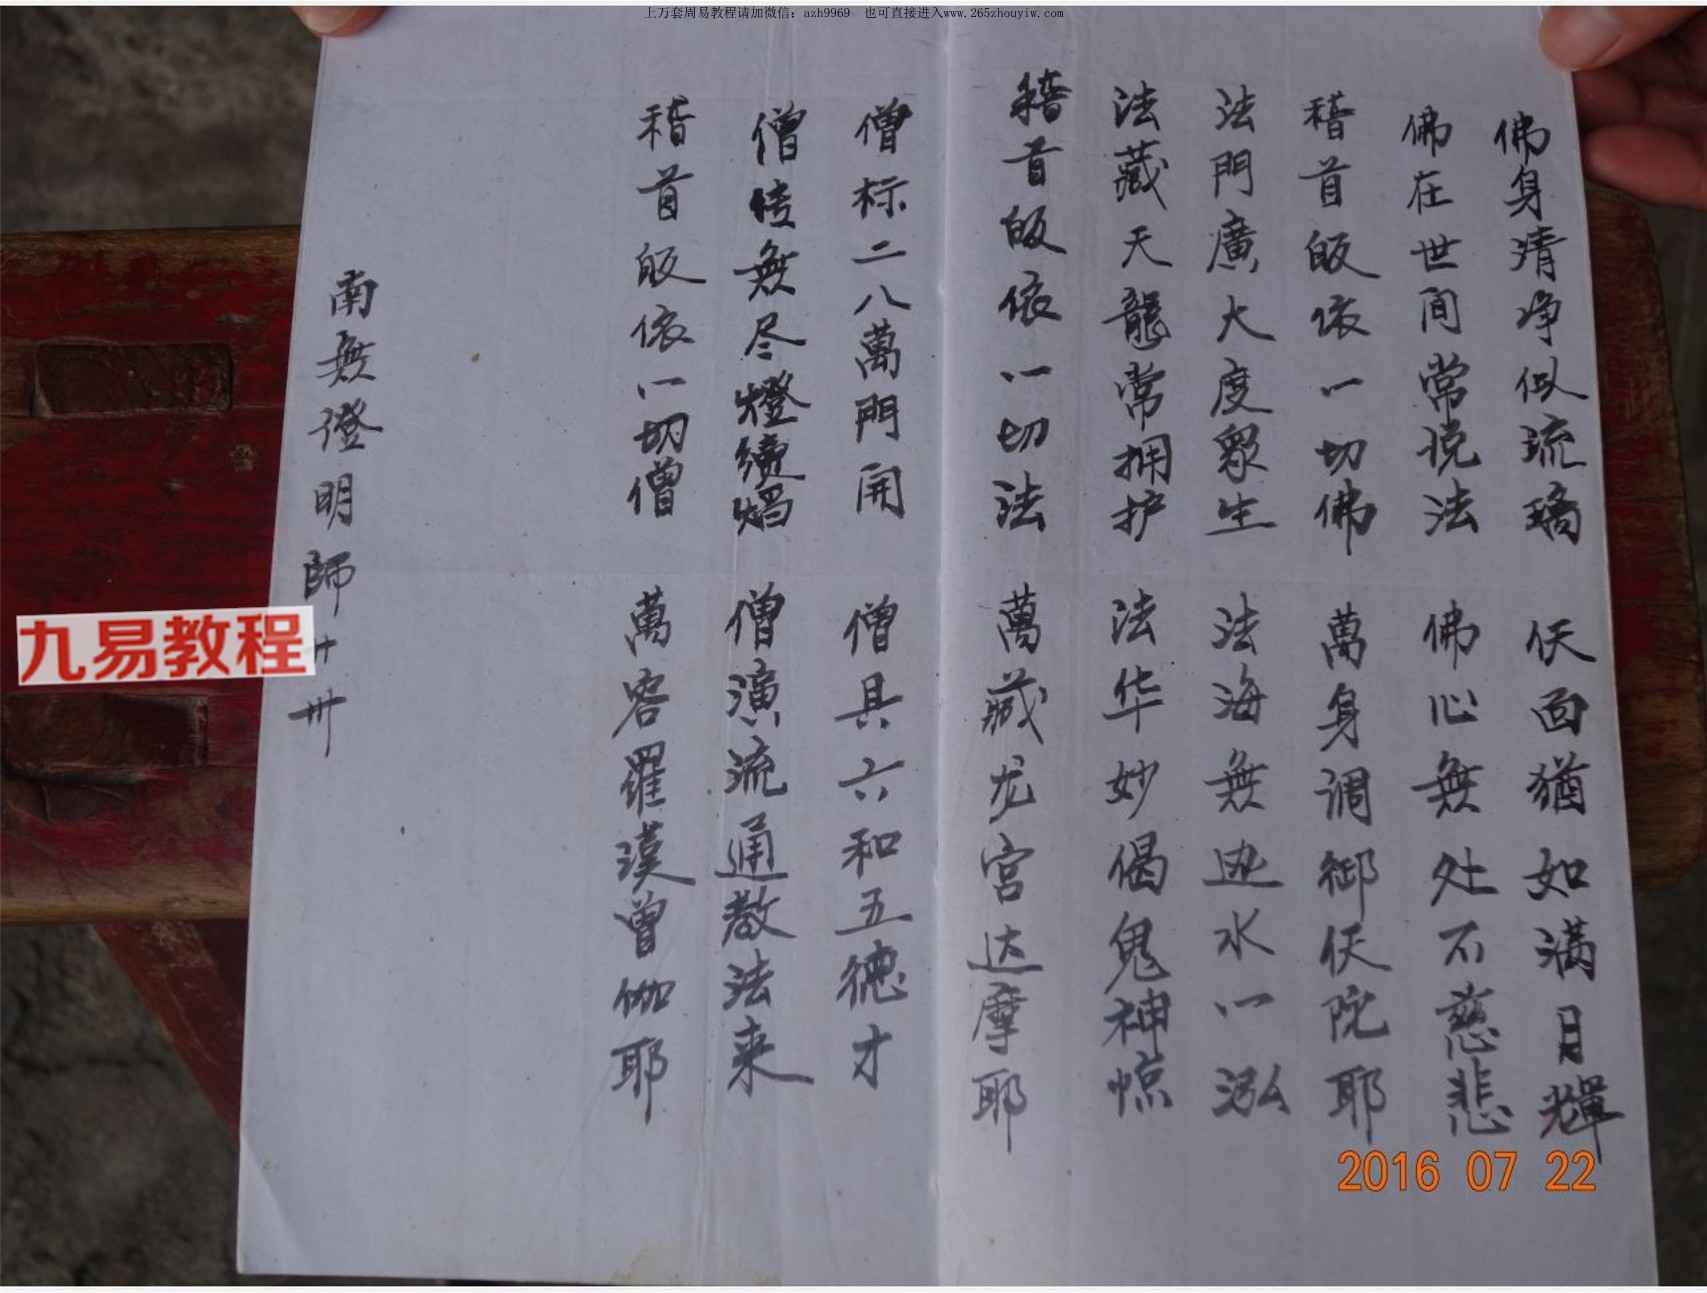 上万套周易教程请加微信: azh9969 也可直接进入www.265zhouyiw.com
佛身清净似流璃 仸面猶如满月輝
佛在世间常说法 佛心無处不慈悲
稽首皈依一切佛 萬身调御仸陀耶
法門廣大度眾生 法海無边水一泓
法藏天龍常拥护 法华妙偈鬼神惊
稽首皈依一切法 萬藏龙宫达摩耶
僧标二八萬門开 僧具六和五德才
僧传無尽燈續焟 僧演流通教法来
稽首皈依一切僧 萬容羅漢曾伽耶
南無澄明師
九易教程
2016 07 22